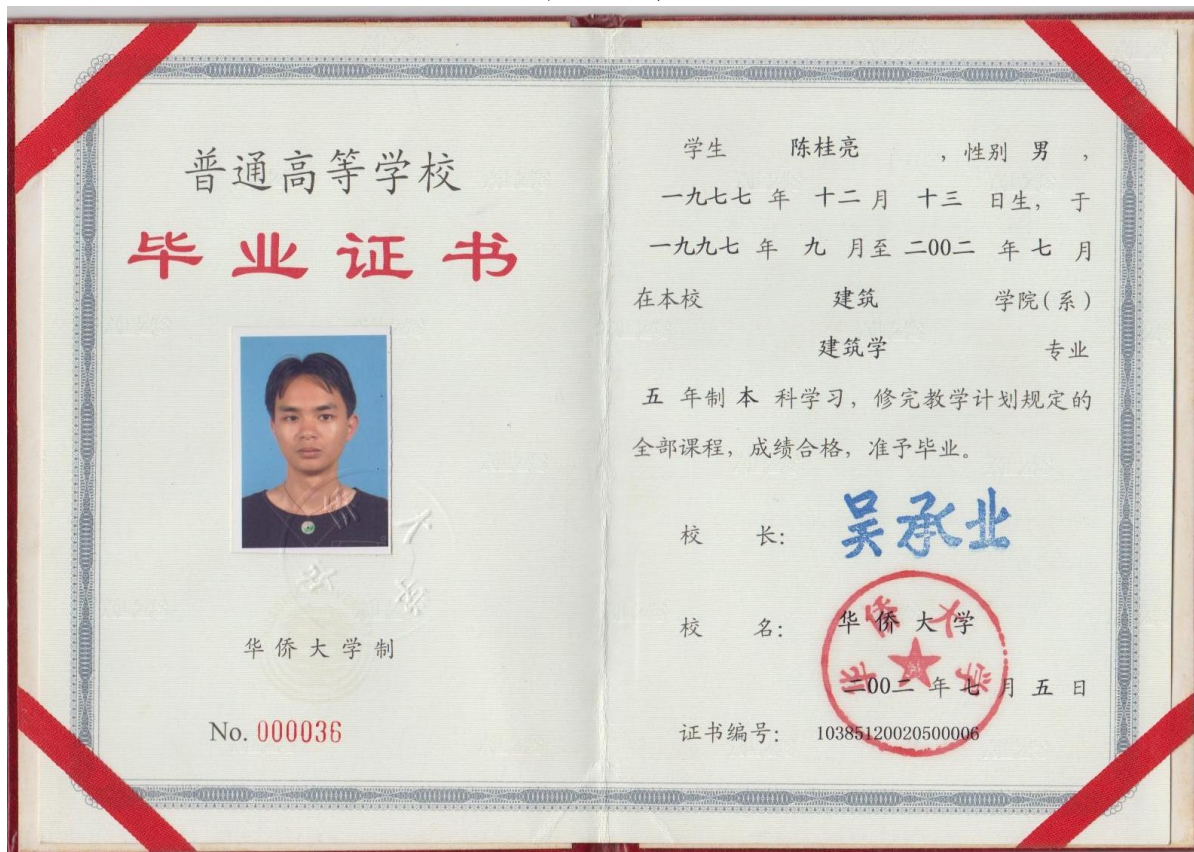 普通高等学校
毕业证书
华侨大学制
No. 000036
学生 陈桂亮 ，性别 男 ，
一九七七 年 十二 月 十三 日生，于
一九九七 年 九 月至 二00二 年 七 月
在本校 建筑 学院(系)
建筑学 专业
五 年制 本 科学习，修完教学计划规定的
全部课程，成绩合格，准予毕业。
校 长： 吴承业
校 名： 华侨大学
华侨大学
二00二 年 七 月 五 日
证书编号： 103851200205000006